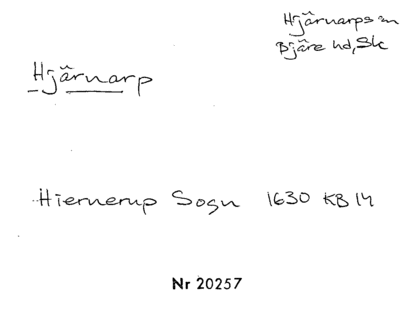 Hjärnarps sn
Bjäre hd, Sk
Hjärnarp
Hiernerup Sogn 1630 KB 14
Nr 20257